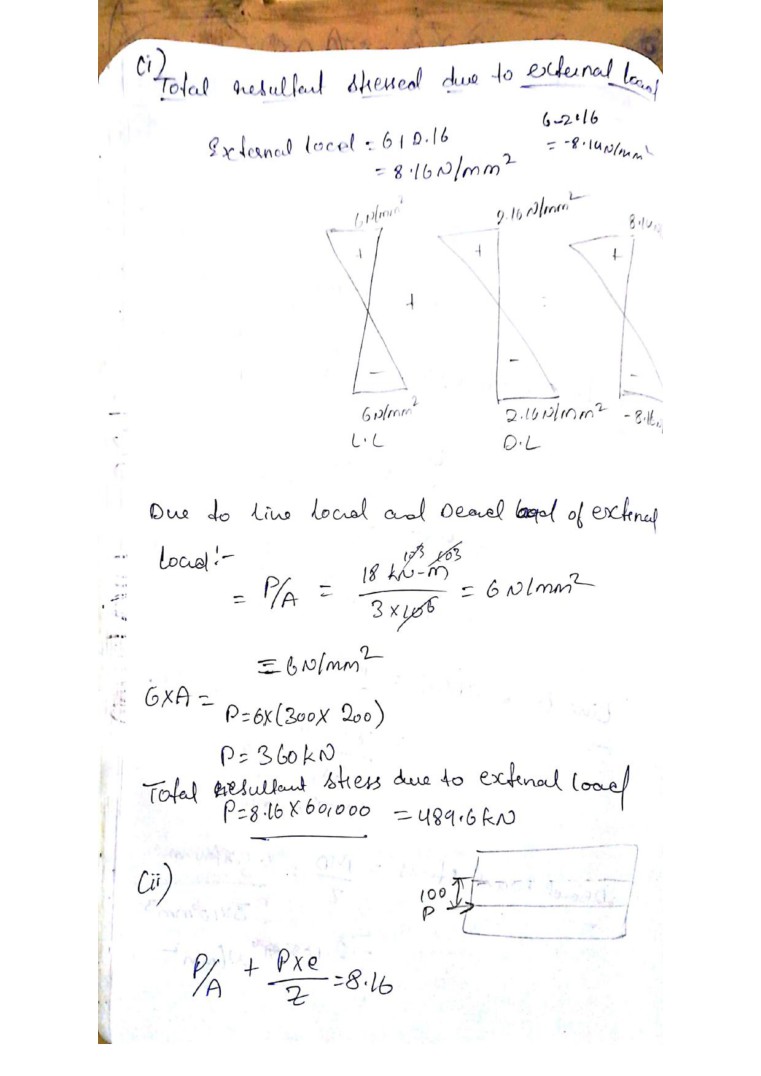 (i)
Total resultant stressed due to external load
External load = 6+2.16
= 8.16 N/mm²
6-2.16
= -8.16 N/mm²
6 N/mm²
2.16 N/mm²
8.16
+
+
+
+
-
-
-
6 N/mm²
2.16 N/mm²
-8.16
L.L
D.L
Due to live load and Dead load of external
load:-
= P/A = 18 kN-m 10³ 10³ / 3 x 10⁶ = 6 N/mm²
= 6 N/mm²
6XA =
P=6x(300x 200)
P= 360kN
Total resultant stress due to external load
P=8.16 X 60,000 = 489.6 kN
(ii)
100
P
P/A + Pxe/Z = 8.16